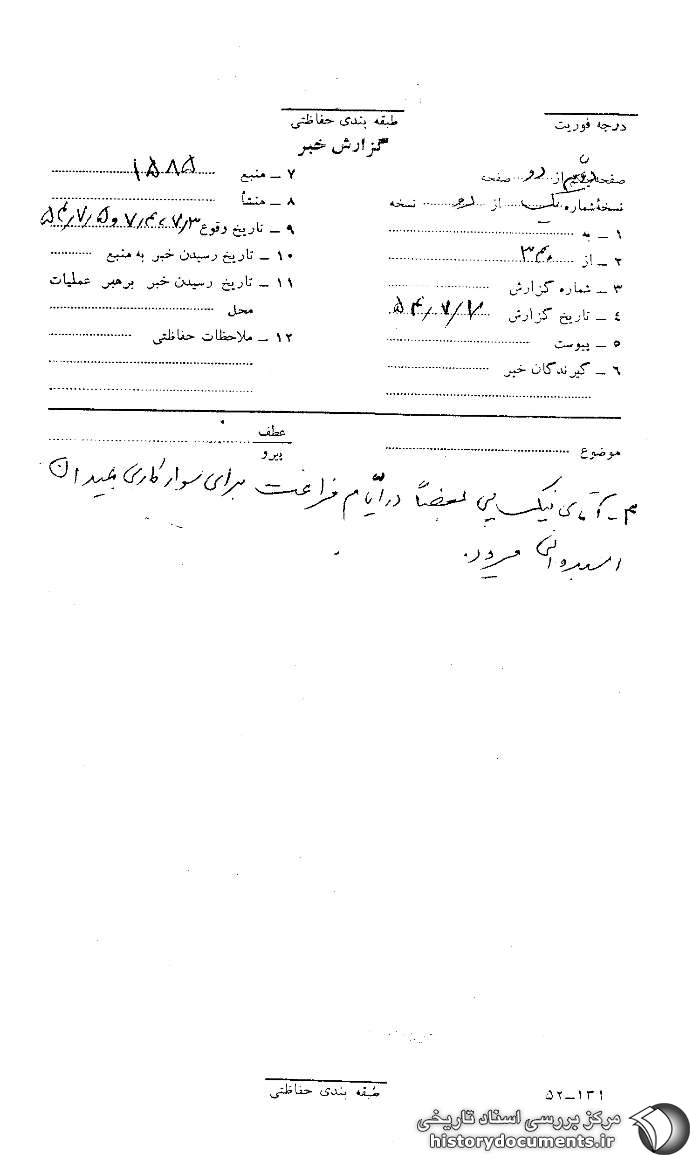 درجه فوریت
طبقه بندی حفاظتی
گزارش خبر
صفحه دوم از دو صفحه
نسخهٔ شماره یک از دو نسخه
۱ ـ به
۲ ـ از ۳۴۰
۳ ـ شماره گزارش
۴ ـ تاریخ گزارش ۵۴/۷/۷
۵ ـ پیوست
۶ ـ گیرندگان خبر
۷ ـ منبع ۱۵۸۵
۸ ـ منشأ
۹ ـ تاریخ وقوع ۷/۳، ۷/۴ و ۵۴/۷/۵
۱۰ ـ تاریخ رسیدن خبر به منبع
۱۱ ـ تاریخ رسیدن خبر برهبر عملیات
محل
۱۲ ـ ملاحظات حفاظتی
موضوع
عطف
پیرو
۴ـ آقای نیک پی بعضاً در ایام فراغت برای سوارکاری بمیدان
اسبدوانی میرود.
طبقه بندی حفاظتی
۵۲ـ۱۳۱
مرکز بررسی اسناد تاریخی
historydocuments.ir